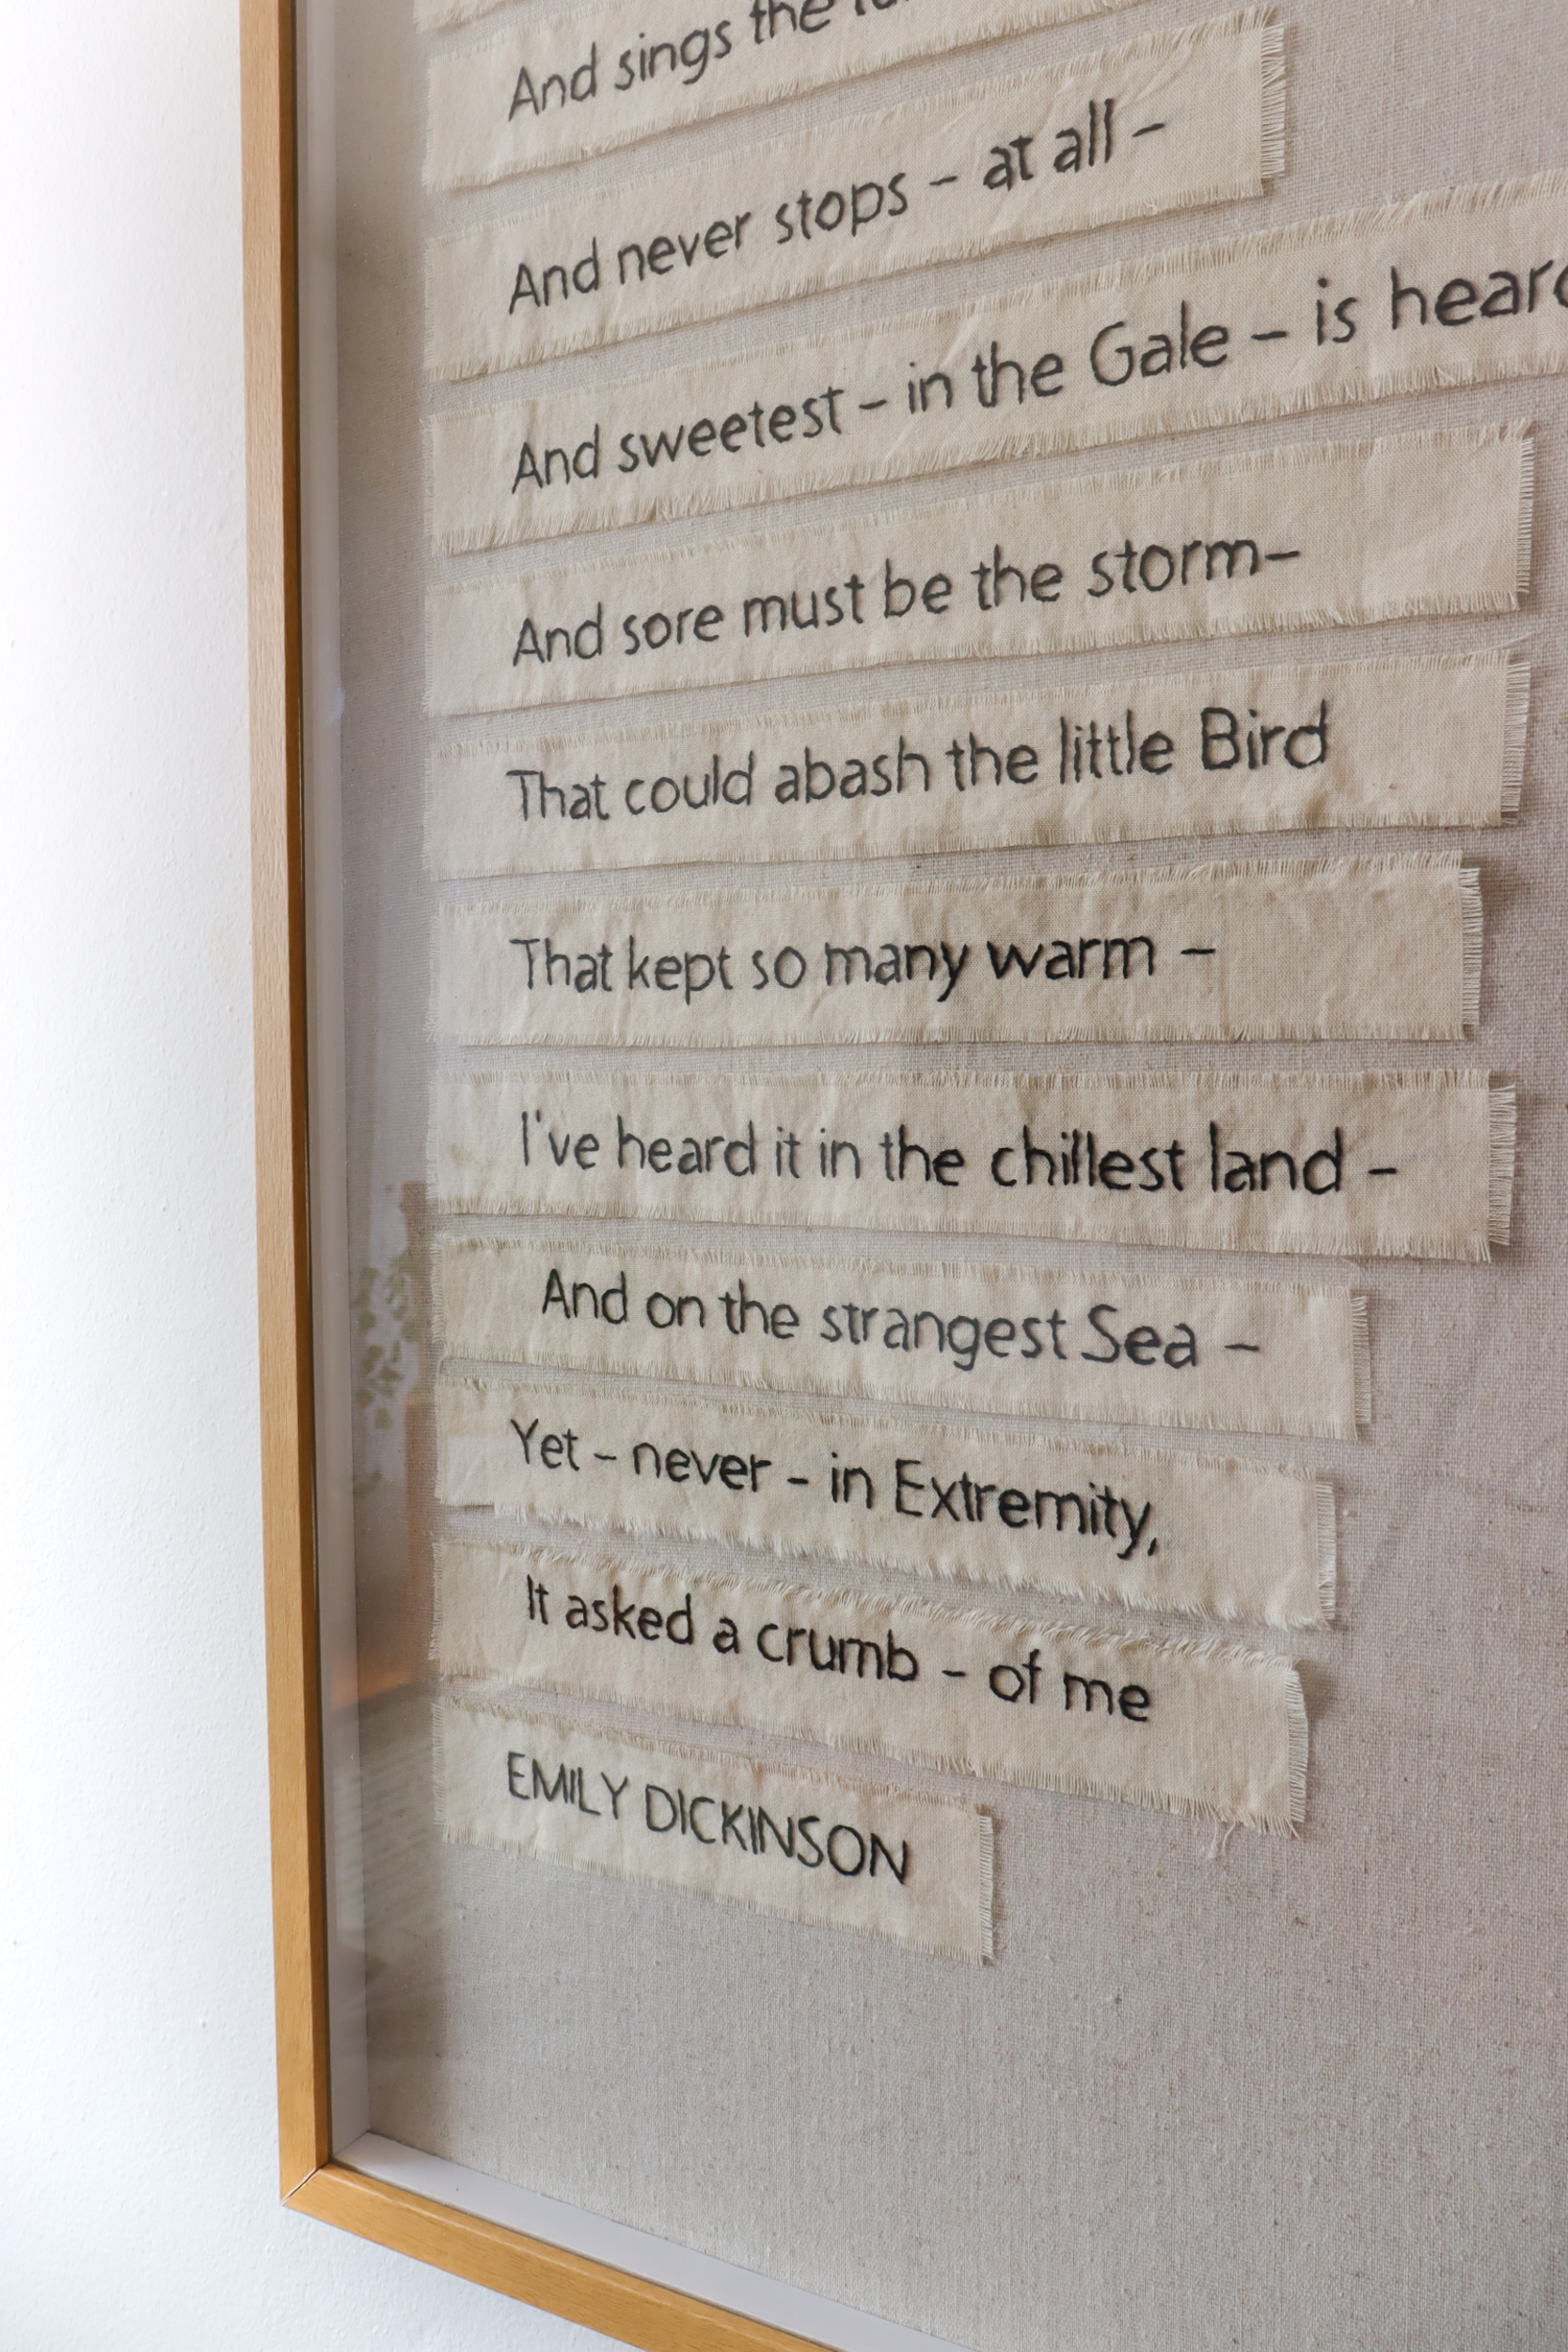 And sings the
And never stops – at all –
And sweetest – in the Gale – is heard
And sore must be the storm–
That could abash the little Bird
That kept so many warm –
I've heard it in the chillest land –
And on the strangest Sea –
Yet – never – in Extremity,
It asked a crumb – of me
EMILY DICKINSON